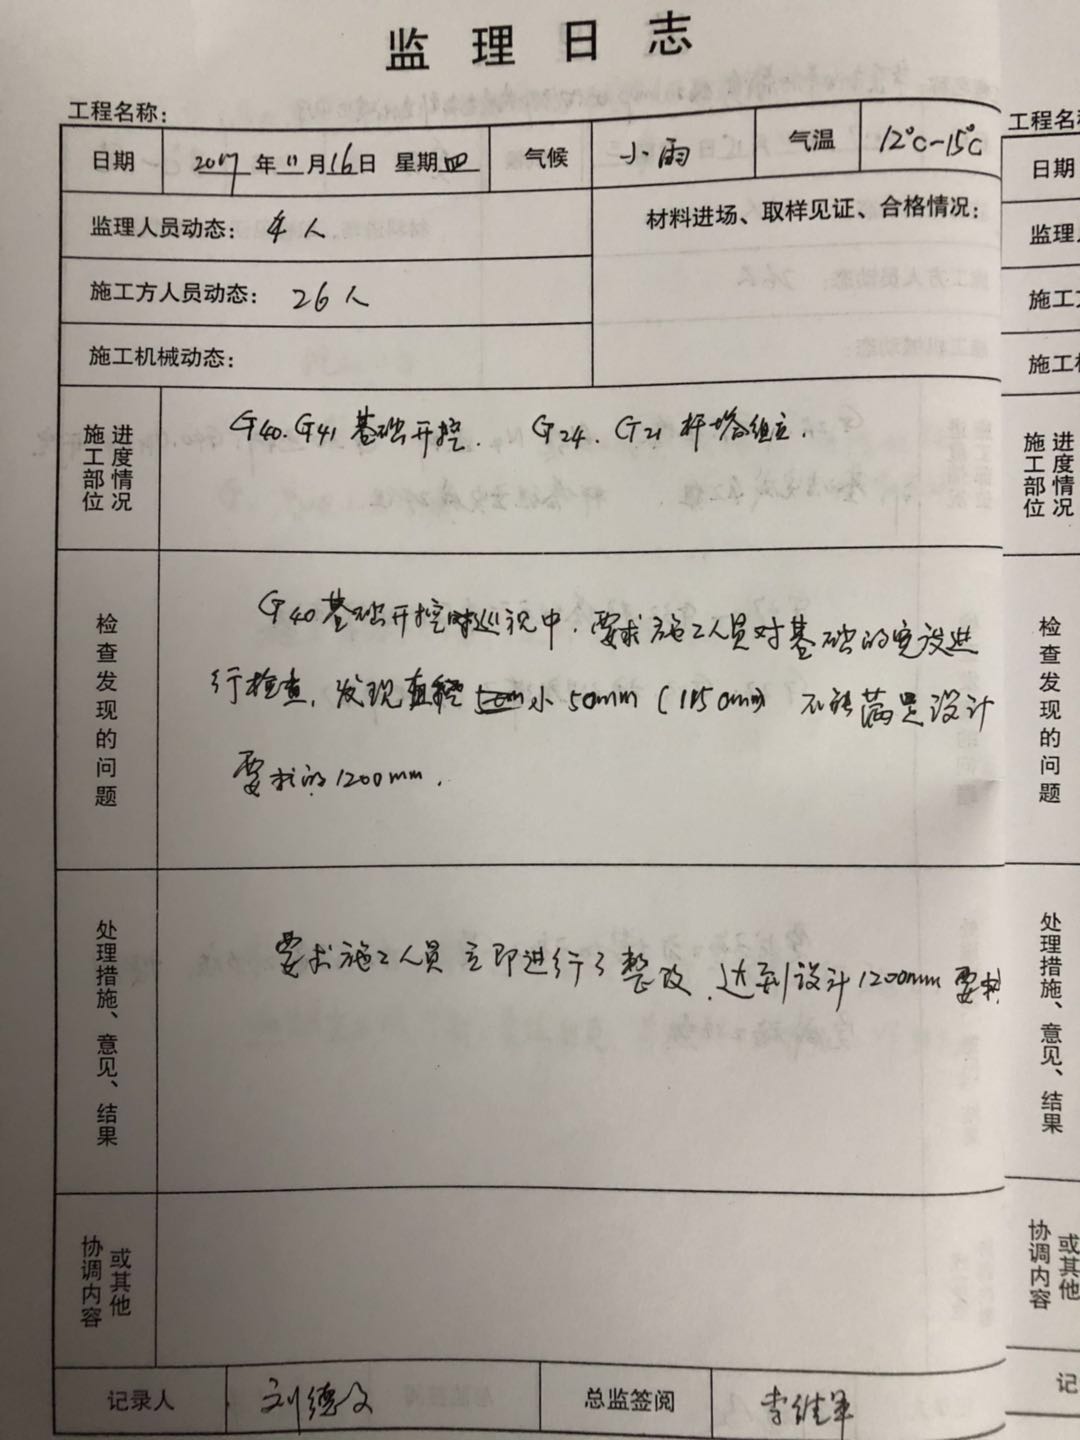 监理日志
工程名称：
日期 2017年11月16日 星期四 气候 小雨 气温 12℃-15℃
监理人员动态：4人
材料进场、取样见证、合格情况：
施工方人员动态：26人
施工机械动态：
施工部位 进度情况
G40.G41基础开挖. G24.G21杆塔组立.
检查发现的问题
G40基础开挖时巡视中.要求施工人员对基础的宽设进
行检查,发现直径 小50mm(1150mm) 不能满足设计
要求的1200mm.
处理措施、意见、结果
要求施工人员立即进行了整改.达到设计1200mm要求
协调内容 或其他
记录人 刘德文 总监签阅 李维军
工程名称
日期
监理
施工
施工机
施工部位 进度情况
检查发现的问题
处理措施、意见、结果
协调内容 或其他
记